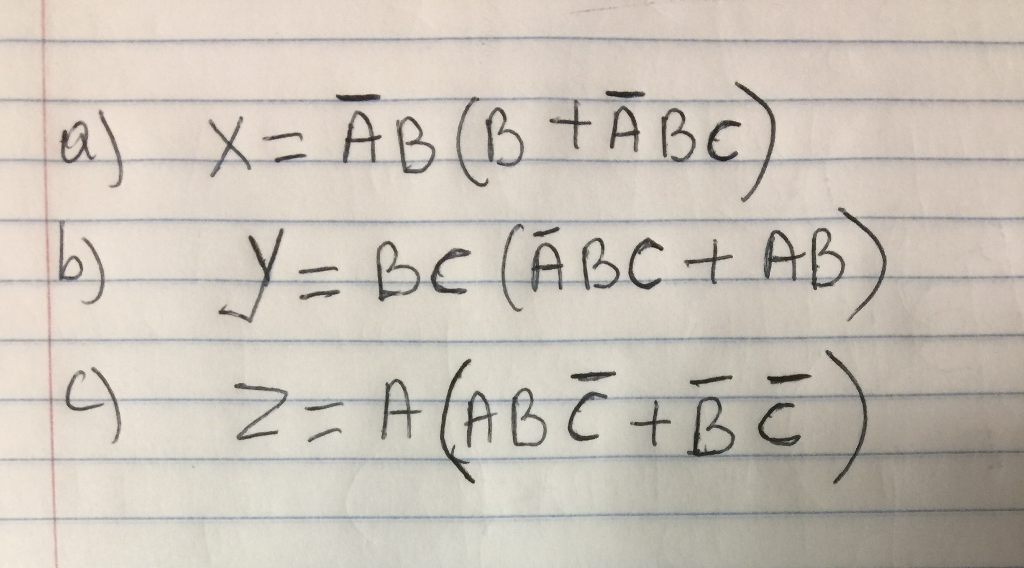 a) X = A̅B(B + A̅BC)
b) y = BC(A̅BC + AB)
c) Z = A(ABC̅ + B̅C̅)